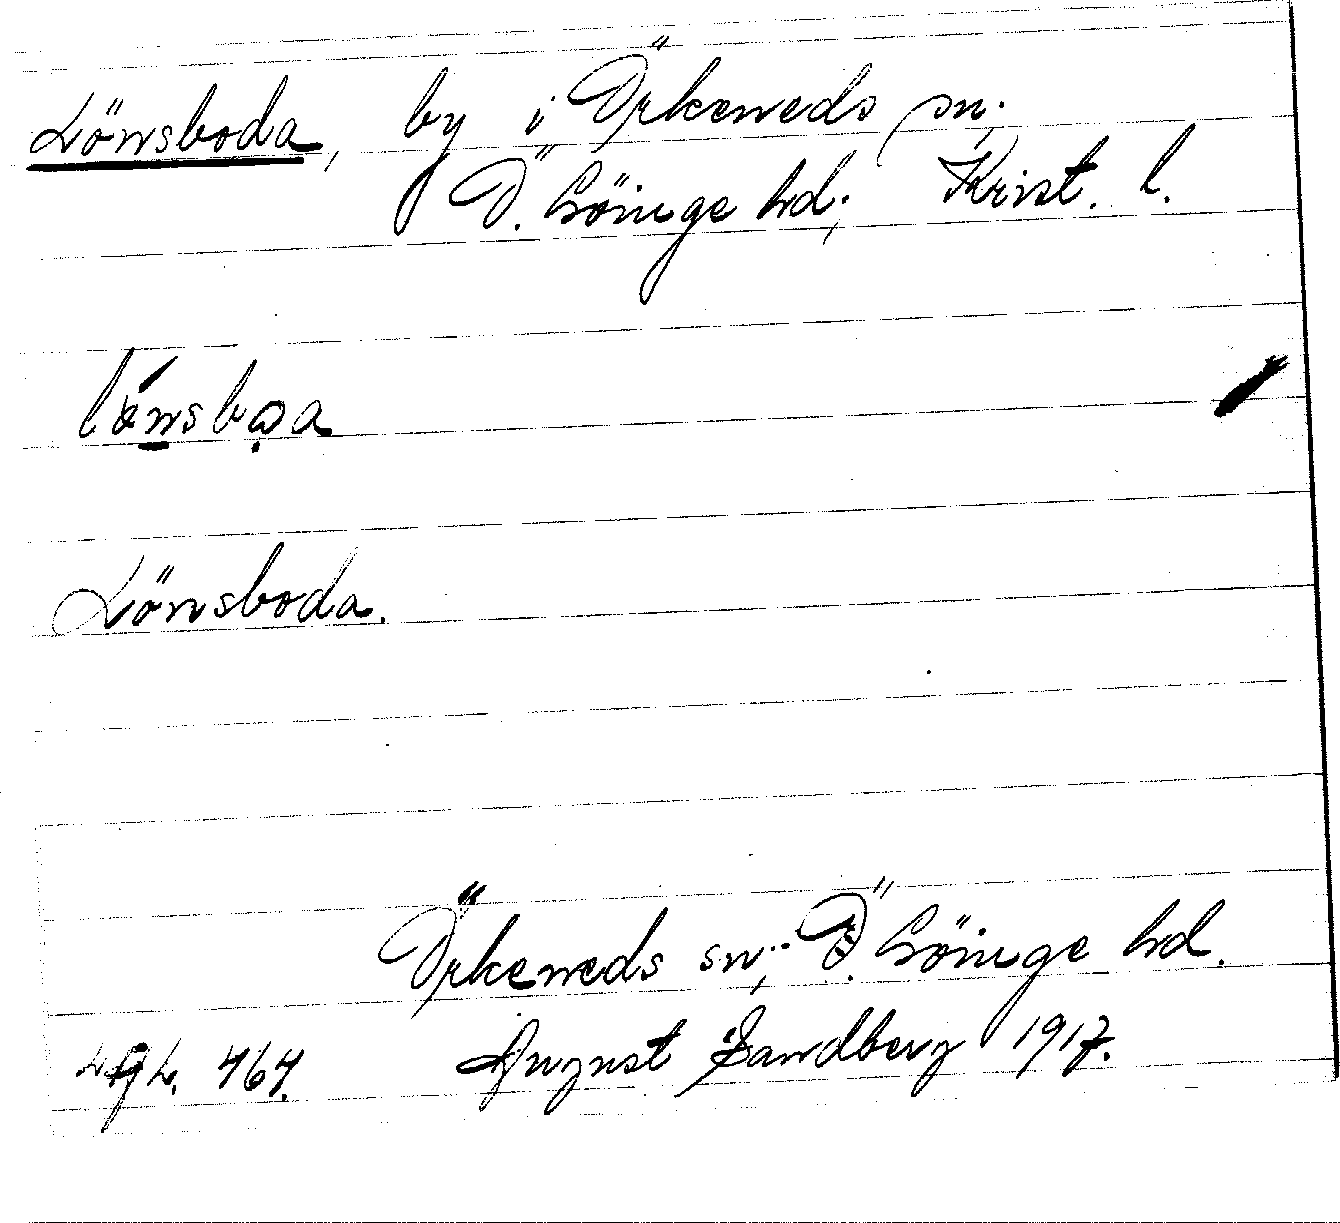 Lönsboda, by i Örkeneds sn.
Ö. Göinge hd., Krist. l.
lönsboa
Lönsboda.
Örkeneds sn., Ö. Göinge hd.
August Sandberg 1917.